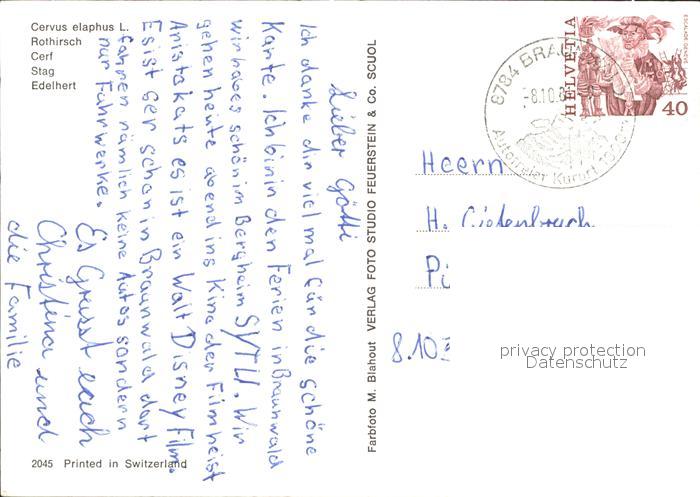 Cervus elaphus L.
Rothirsch
Cerf
Stag
Edelhert
Lieber Götti
Ich danke dir viel mal für die schöne
Karte. Ich bin in den Ferien in Braunwald
wir habes schön im Bergheim SYTU. Wir
gehen heute abend ins Kino der Film heist
Aristakats es ist ein Walt Disney Film.
Es ist ser schön in Braunwald dort
fahren nämlich keine Autos sondern
nur Fuhrwerke.
Es Grüsst euch
Christina und
die Familie
2045 Printed in Switzerland
Farbfoto M. Blahout VERLAG FOTO STUDIO FEUERSTEIN & Co. SCUOL
8784 BRAU
-8.10.
Autofreier Kurort
HELVETIA
ESCALADE GENEVE
40
Heern
H.
Pi
8.10
privacy protection
Datenschutz